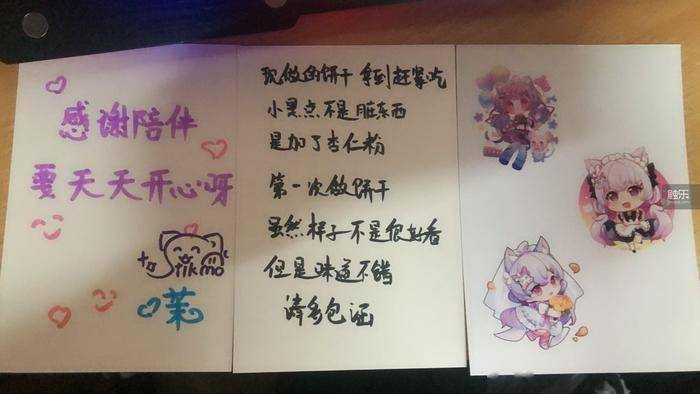 感谢陪伴
要天天开心呀
Stikmo
茉
现做的饼干 拿到赶紧吃
小黑点不是脏东西
是加了杏仁粉
第一次做饼干
虽然样子不是很好看
但是味道不错
请多包涵
触乐